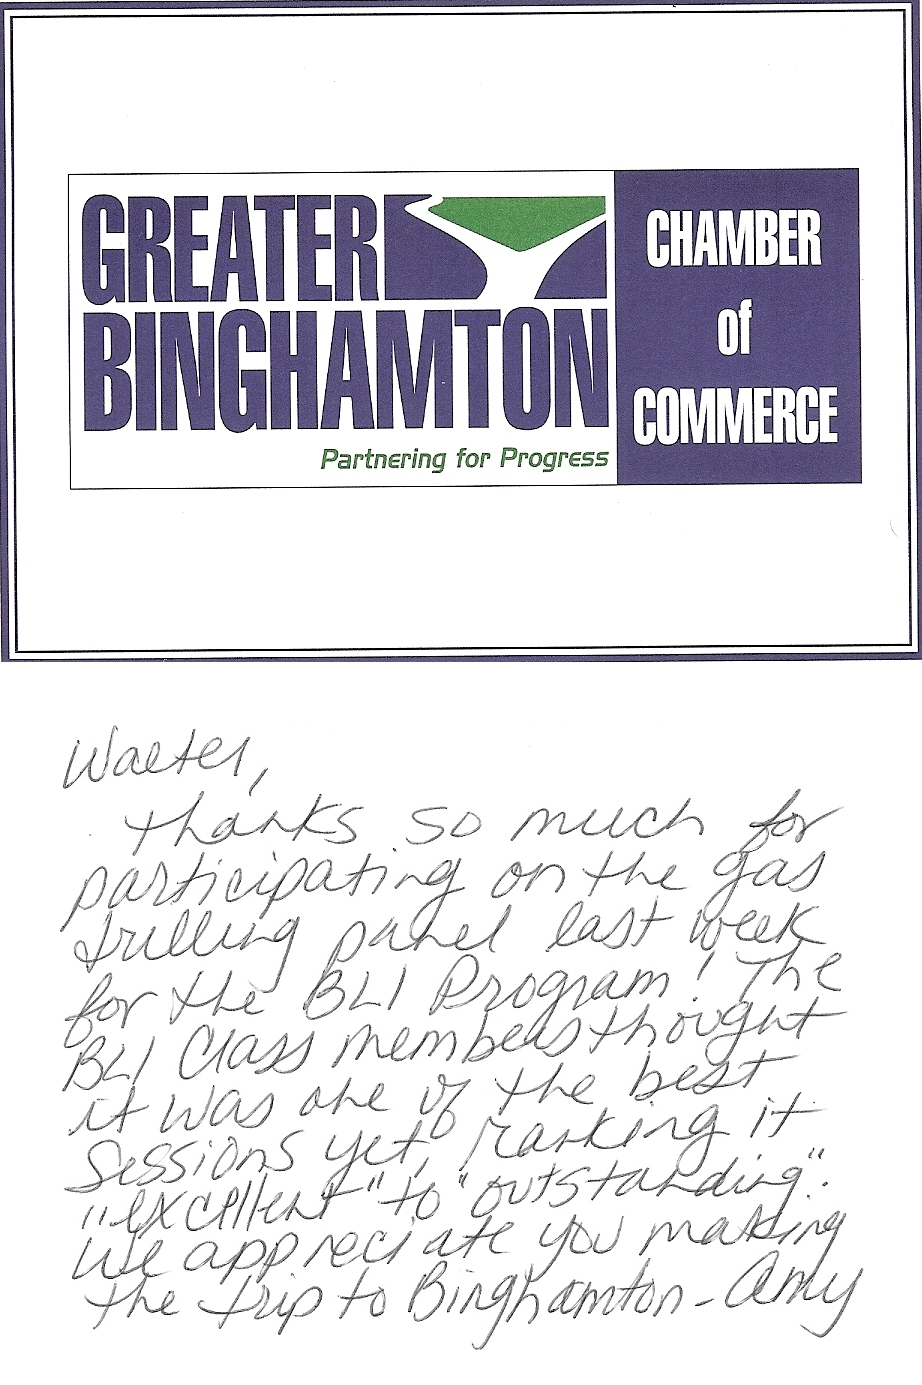 GREATER
BINGHAMTON
Partnering for Progress
CHAMBER
of
COMMERCE
Walter,
Thanks so much for
participating on the gas
drilling panel last week
for the BLI Program! The
BLI Class members thought
it was one of the best
sessions yet, ranking it
"excellent" to "outstanding".
We appreciate you making
the trip to Binghamton - Amy